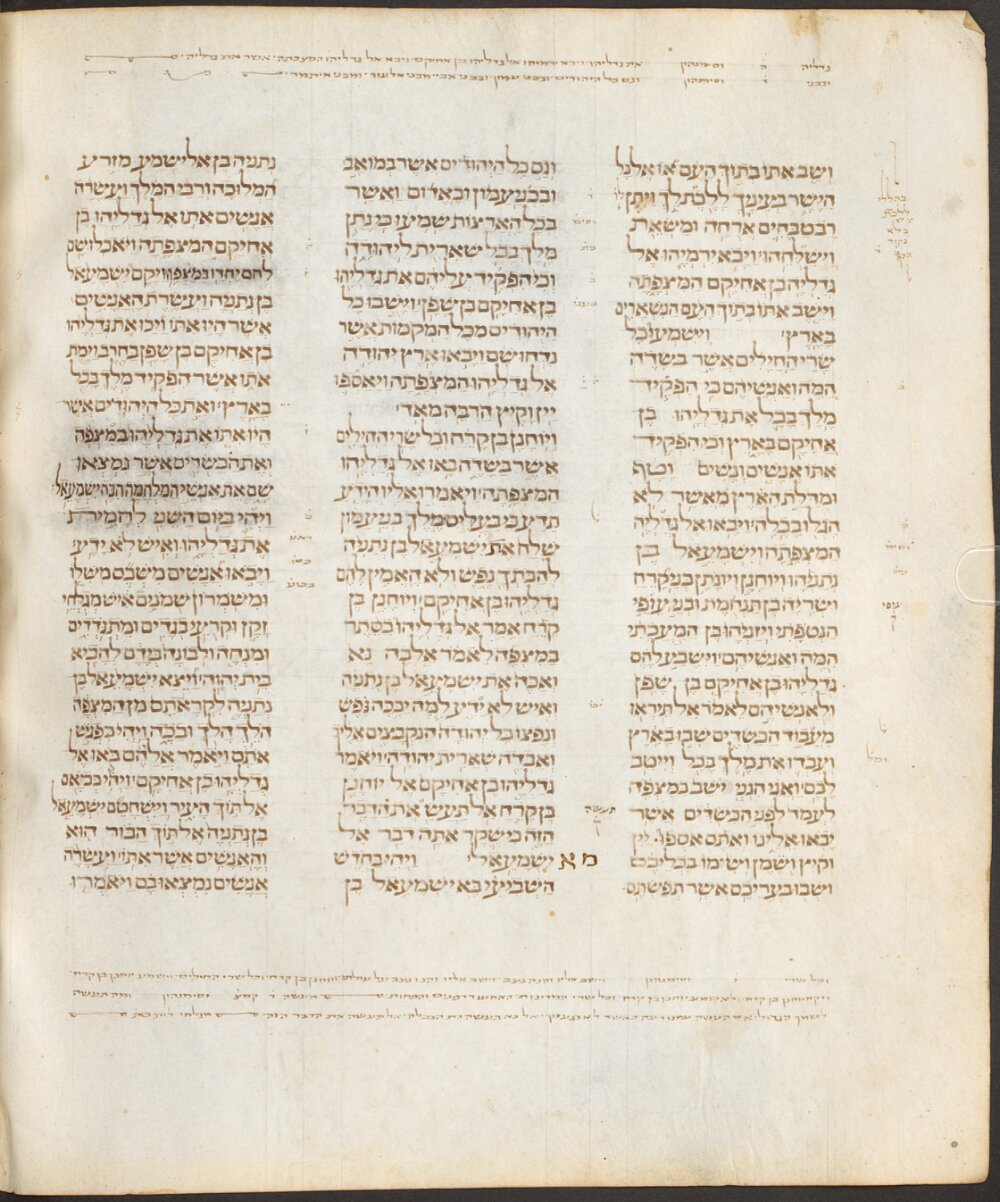 גדליה ה וסימנהון את גדליהו ויבא ירמיהו אל גדליהו בן אחיקם ויבא אל גדליהו המצפתה אשר את גדליה
ובבני ו וסימנהון וגם כל היהודים
ושב אתו בתוך העם או אל כל
הישר בעיניך ללכת לך ויתן לו
רב טבחים ארחה ומשאת
וישלחהו ויבא ירמיהו אל
גדליה בן אחיקם המצפתה
וישב אתו בתוך העם הנשארים
בארץ וישמעו כל
שרי החילים אשר בשדה
המה ואנשיהם כי הפקיד
מלך בבל את גדליהו בן
אחיקם בארץ וכי הפקיד
אתו אנשים ונשים וטף
ומדלת הארץ מאשר לא
הגלו בבלה ויבאו אל גדליה
המצפתה וישמעאל בן
נתניהו ויוחנן ויונתן בני קרח
ושריה בן תנחמת ובני עופי
הנטפתי ויזניהו בן המעכתי
המה ואנשיהם וישבע להם
גדליהו בן אחיקם בן שפן
ולאנשיהם לאמר אל תיראו
מעבוד הכשדים שבו בארץ
ועבדו את מלך בבל וייטב
לכם ואני הנני ישב במצפה
לעמד לפני הכשדים אשר
יבאו אלינו ואתם אספו יין
וקיץ ושמן ושימו בכליכם
ושבו בעריכם אשר תפשתם
וגם כל היהודים אשר במואב
ובבני עמון ובאדום ואשר
בכל הארצות שמעו כי נתן
מלך בבל שארית ליהודה
וכי הפקיד עליהם את גדליהו
בן אחיקם בן שפן וישבו כל
היהודים מכל המקמות אשר
נדחו שם ויבאו ארץ יהודה
אל גדליהו המצפתה ויאספו
יין וקיץ הרבה מאד
ויוחנן בן קרח וכל שרי החילים
אשר בשדה באו אל גדליהו
המצפתה ויאמרו אליו הידע
תדע כי בעליס מלך בני עמון
שלח את ישמעאל בן נתניה
להכתך נפש ולא האמין להם
גדליהו בן אחיקם ויוחנן בן
קרח אמר אל גדליהו בסתר
במצפה לאמר אלכה נא
ואכה את ישמעאל בן נתניה
ואיש לא ידע למה יככה נפש
ונפצו כל יהודה הנקבצים אליך
ואבדה שארית יהודה ויאמר
גדליהו בן אחיקם אל יוחנן
בן קרח אל תעש את הדבר
הזה כי שקר אתה דבר אל
מא ישמעאל ויהי בחדש
השביעי בא ישמעאל בן
נתניה בן אלישמע מזרע
המלוכה ורבי המלך ועשרה
אנשים אתו אל גדליהו בן
אחיקם המצפתה ויאכלו שם
לחם יחדו במצפה ויקם ישמעאל
בן נתניה ועשרת האנשים
אשר היו אתו ויכו את גדליהו
בן אחיקם בן שפן בחרב וימת
אתו אשר הפקיד מלך בבל
בארץ ואת כל היהודים אשר
היו אתו את גדליהו במצפה
ואת הכשדים אשר נמצאו
שם את אנשי המלחמה הכה ישמעאל
ויהי ביום השני להמית
את גדליהו ואיש לא ידע
ויבאו אנשים משכם משלו
ומשמרון שמנים איש מגלחי
זקן וקרעי בגדים ומתגדדים
ומנחה ולבונה בידם להביא
בית יהוה ויצא ישמעאל בן
נתניה לקראתם מן המצפה
הלך הלך ובכה ויהי כפגש
אתם ויאמר אליהם באו אל
גדליהו בן אחיקם ויהי כבאם
אל תוך העיר וישחטם ישמעאל
בן נתניה אל תוך הבור הוא
והאנשים אשר אתו ועשרה
אנשים נמצאו בם ויאמרו
עופי
תעשה